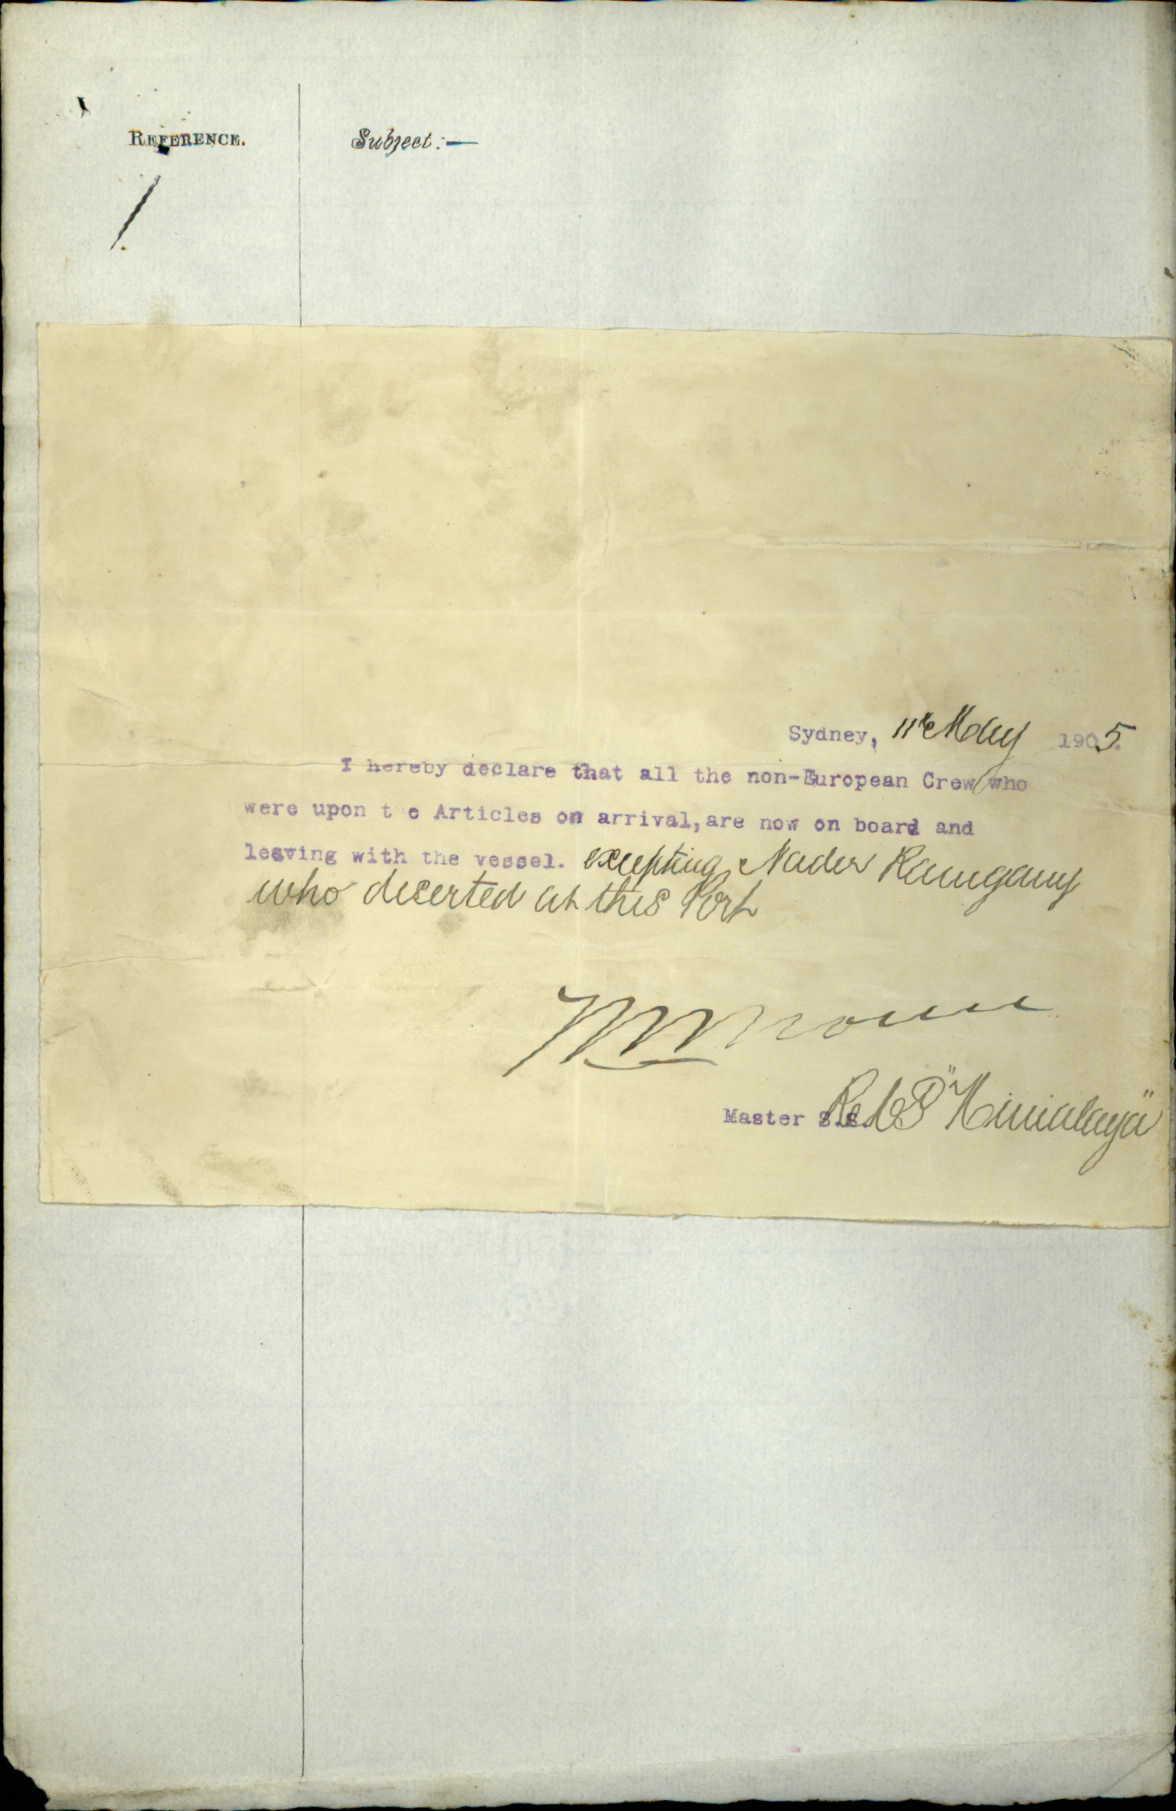 REFERENCE.
Subject:—
Sydney, 11th May 1905.
I hereby declare that all the non-European Crew who
were upon t e Articles on arrival, are now on board and
leaving with the vessel. excepting Nader
who deserted at this Port
Master S.S. R.M.S "Himalaya"